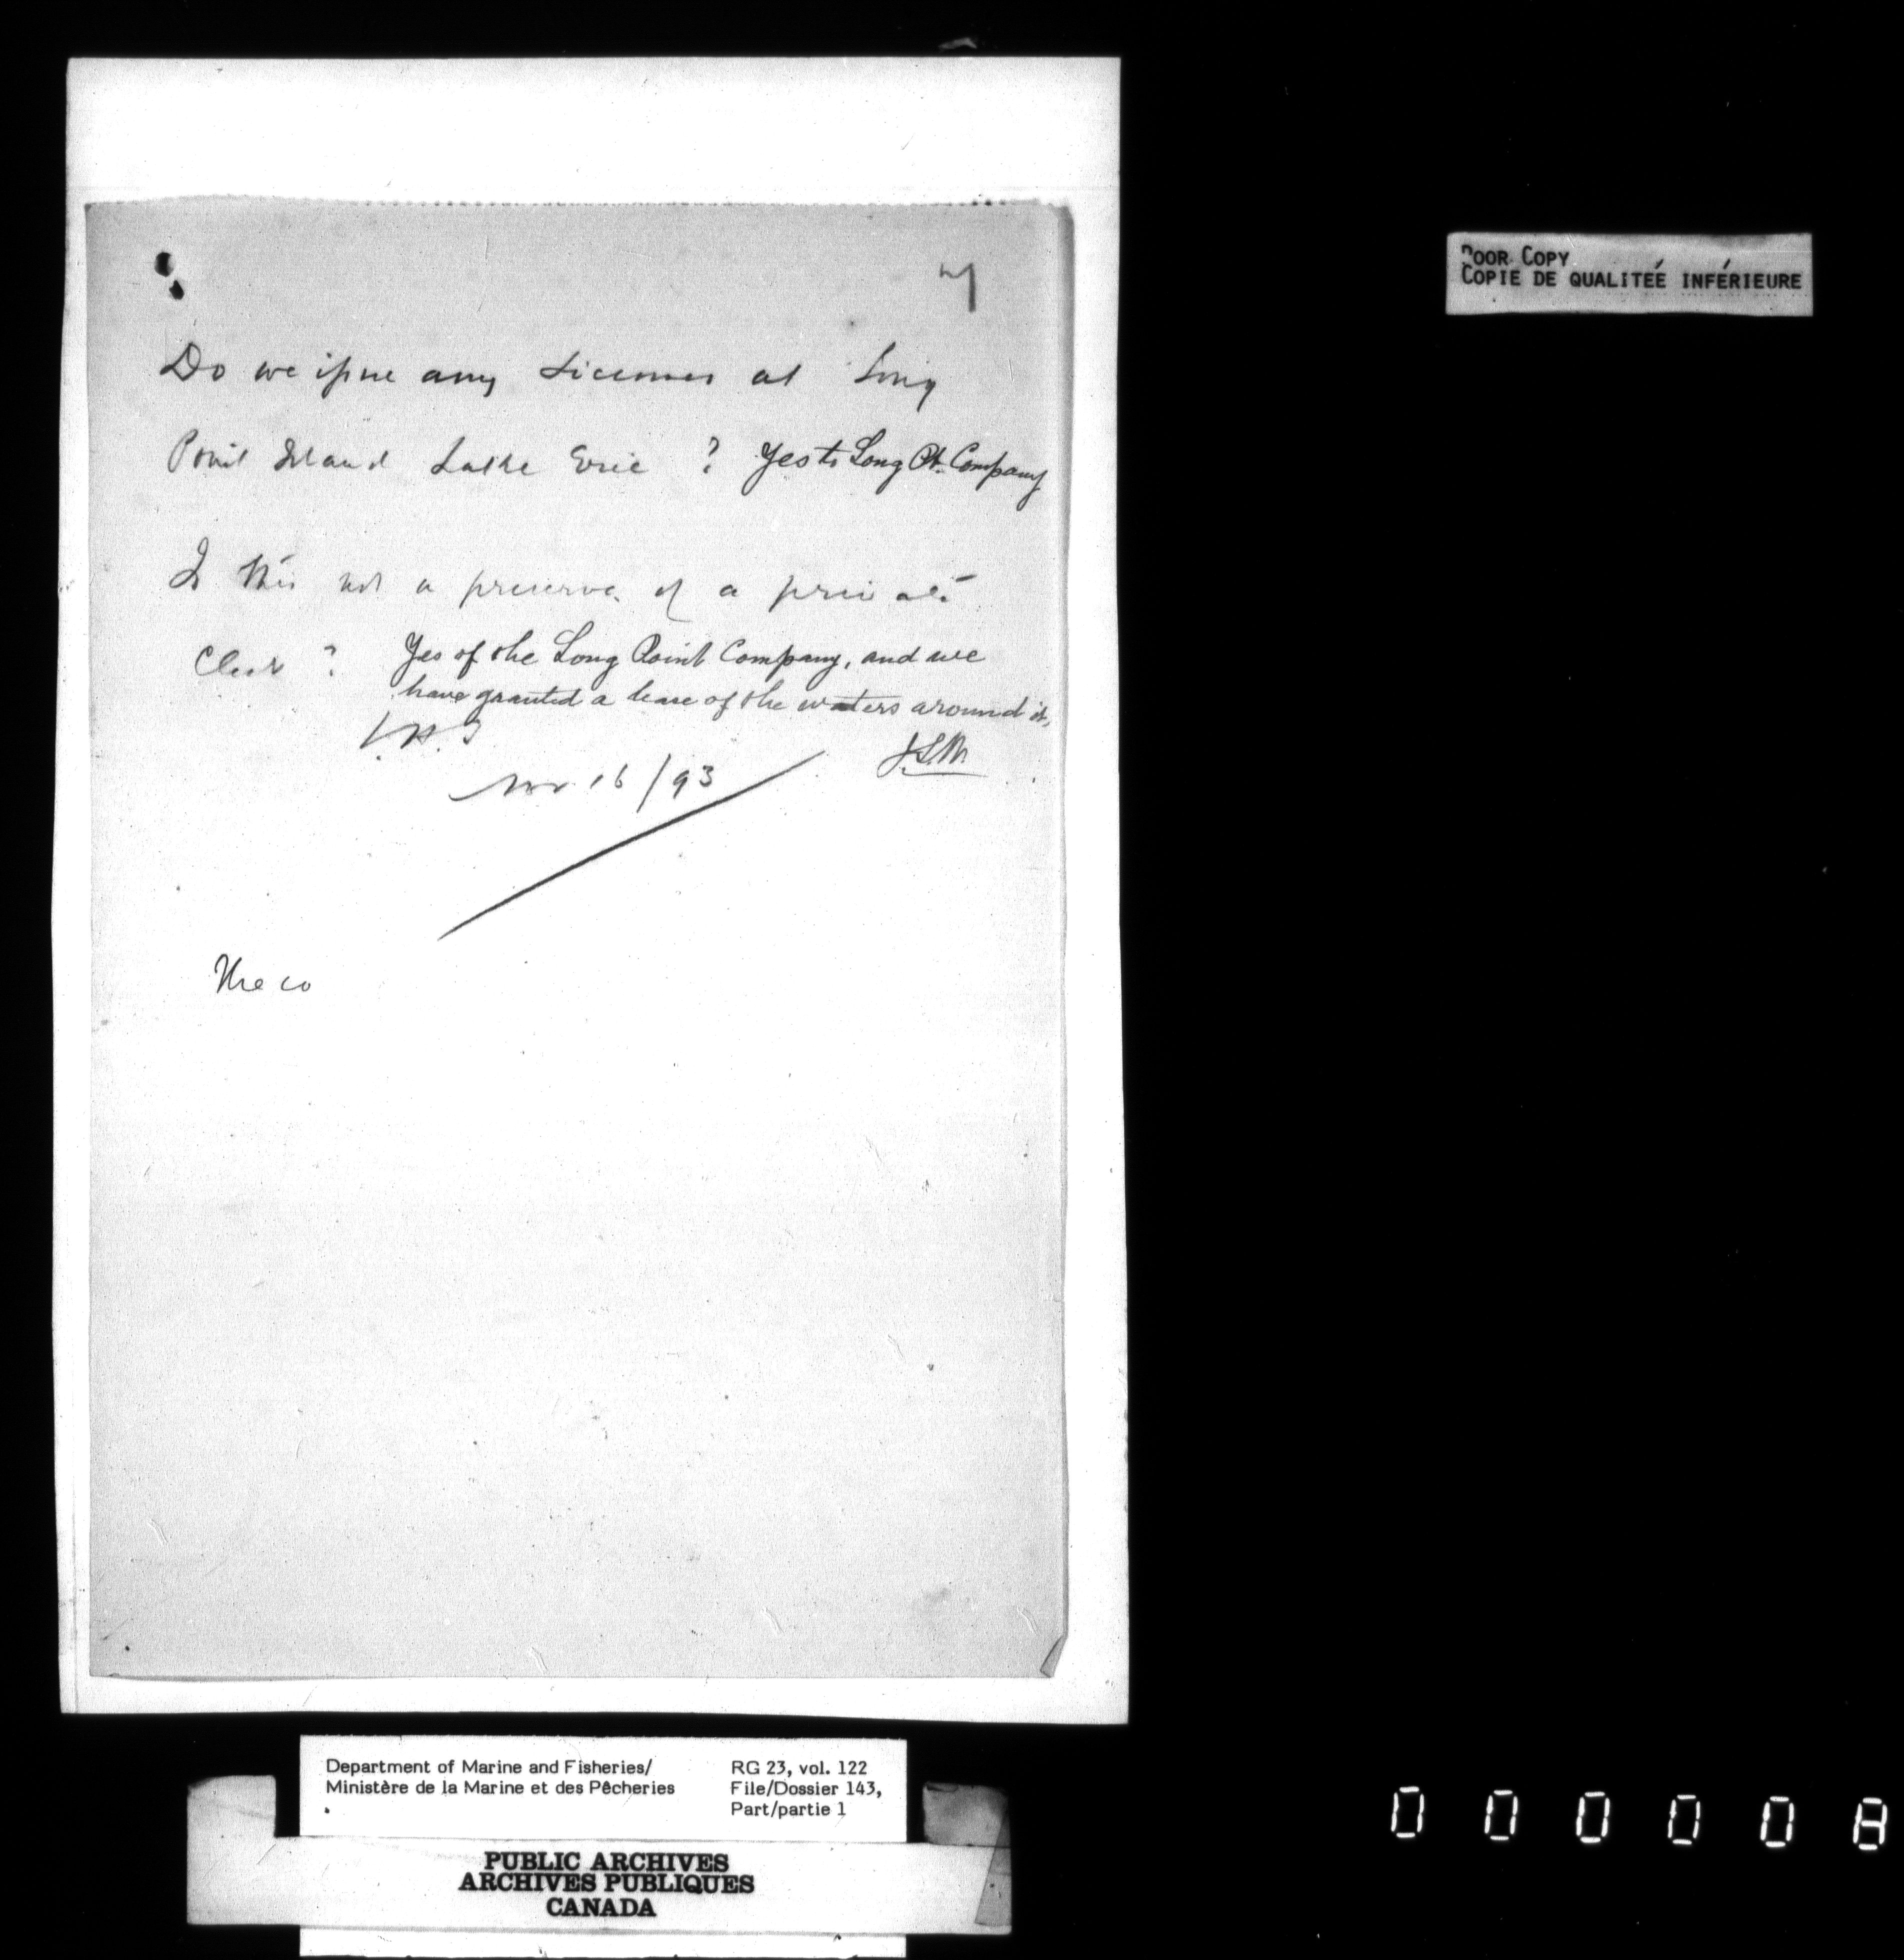 7
Do we issue any Licenses at Long
Point Island Lake Erie ? Yes to Long Pt. Company
Is this not a preserve of a private
Club ? Yes of the Long Point Company, and we
have granted a lease of the waters around it,
C.H.T
J.S.W.
Nov 16/93
The co
POOR COPY
COPIE DE QUALITEÉ INFÉRIEURE
Department of Marine and Fisheries/
Ministère de la Marine et des Pêcheries
RG 23, vol. 122
File/Dossier 143,
Part/partie 1
PUBLIC ARCHIVES
ARCHIVES PUBLIQUES
CANADA
000008